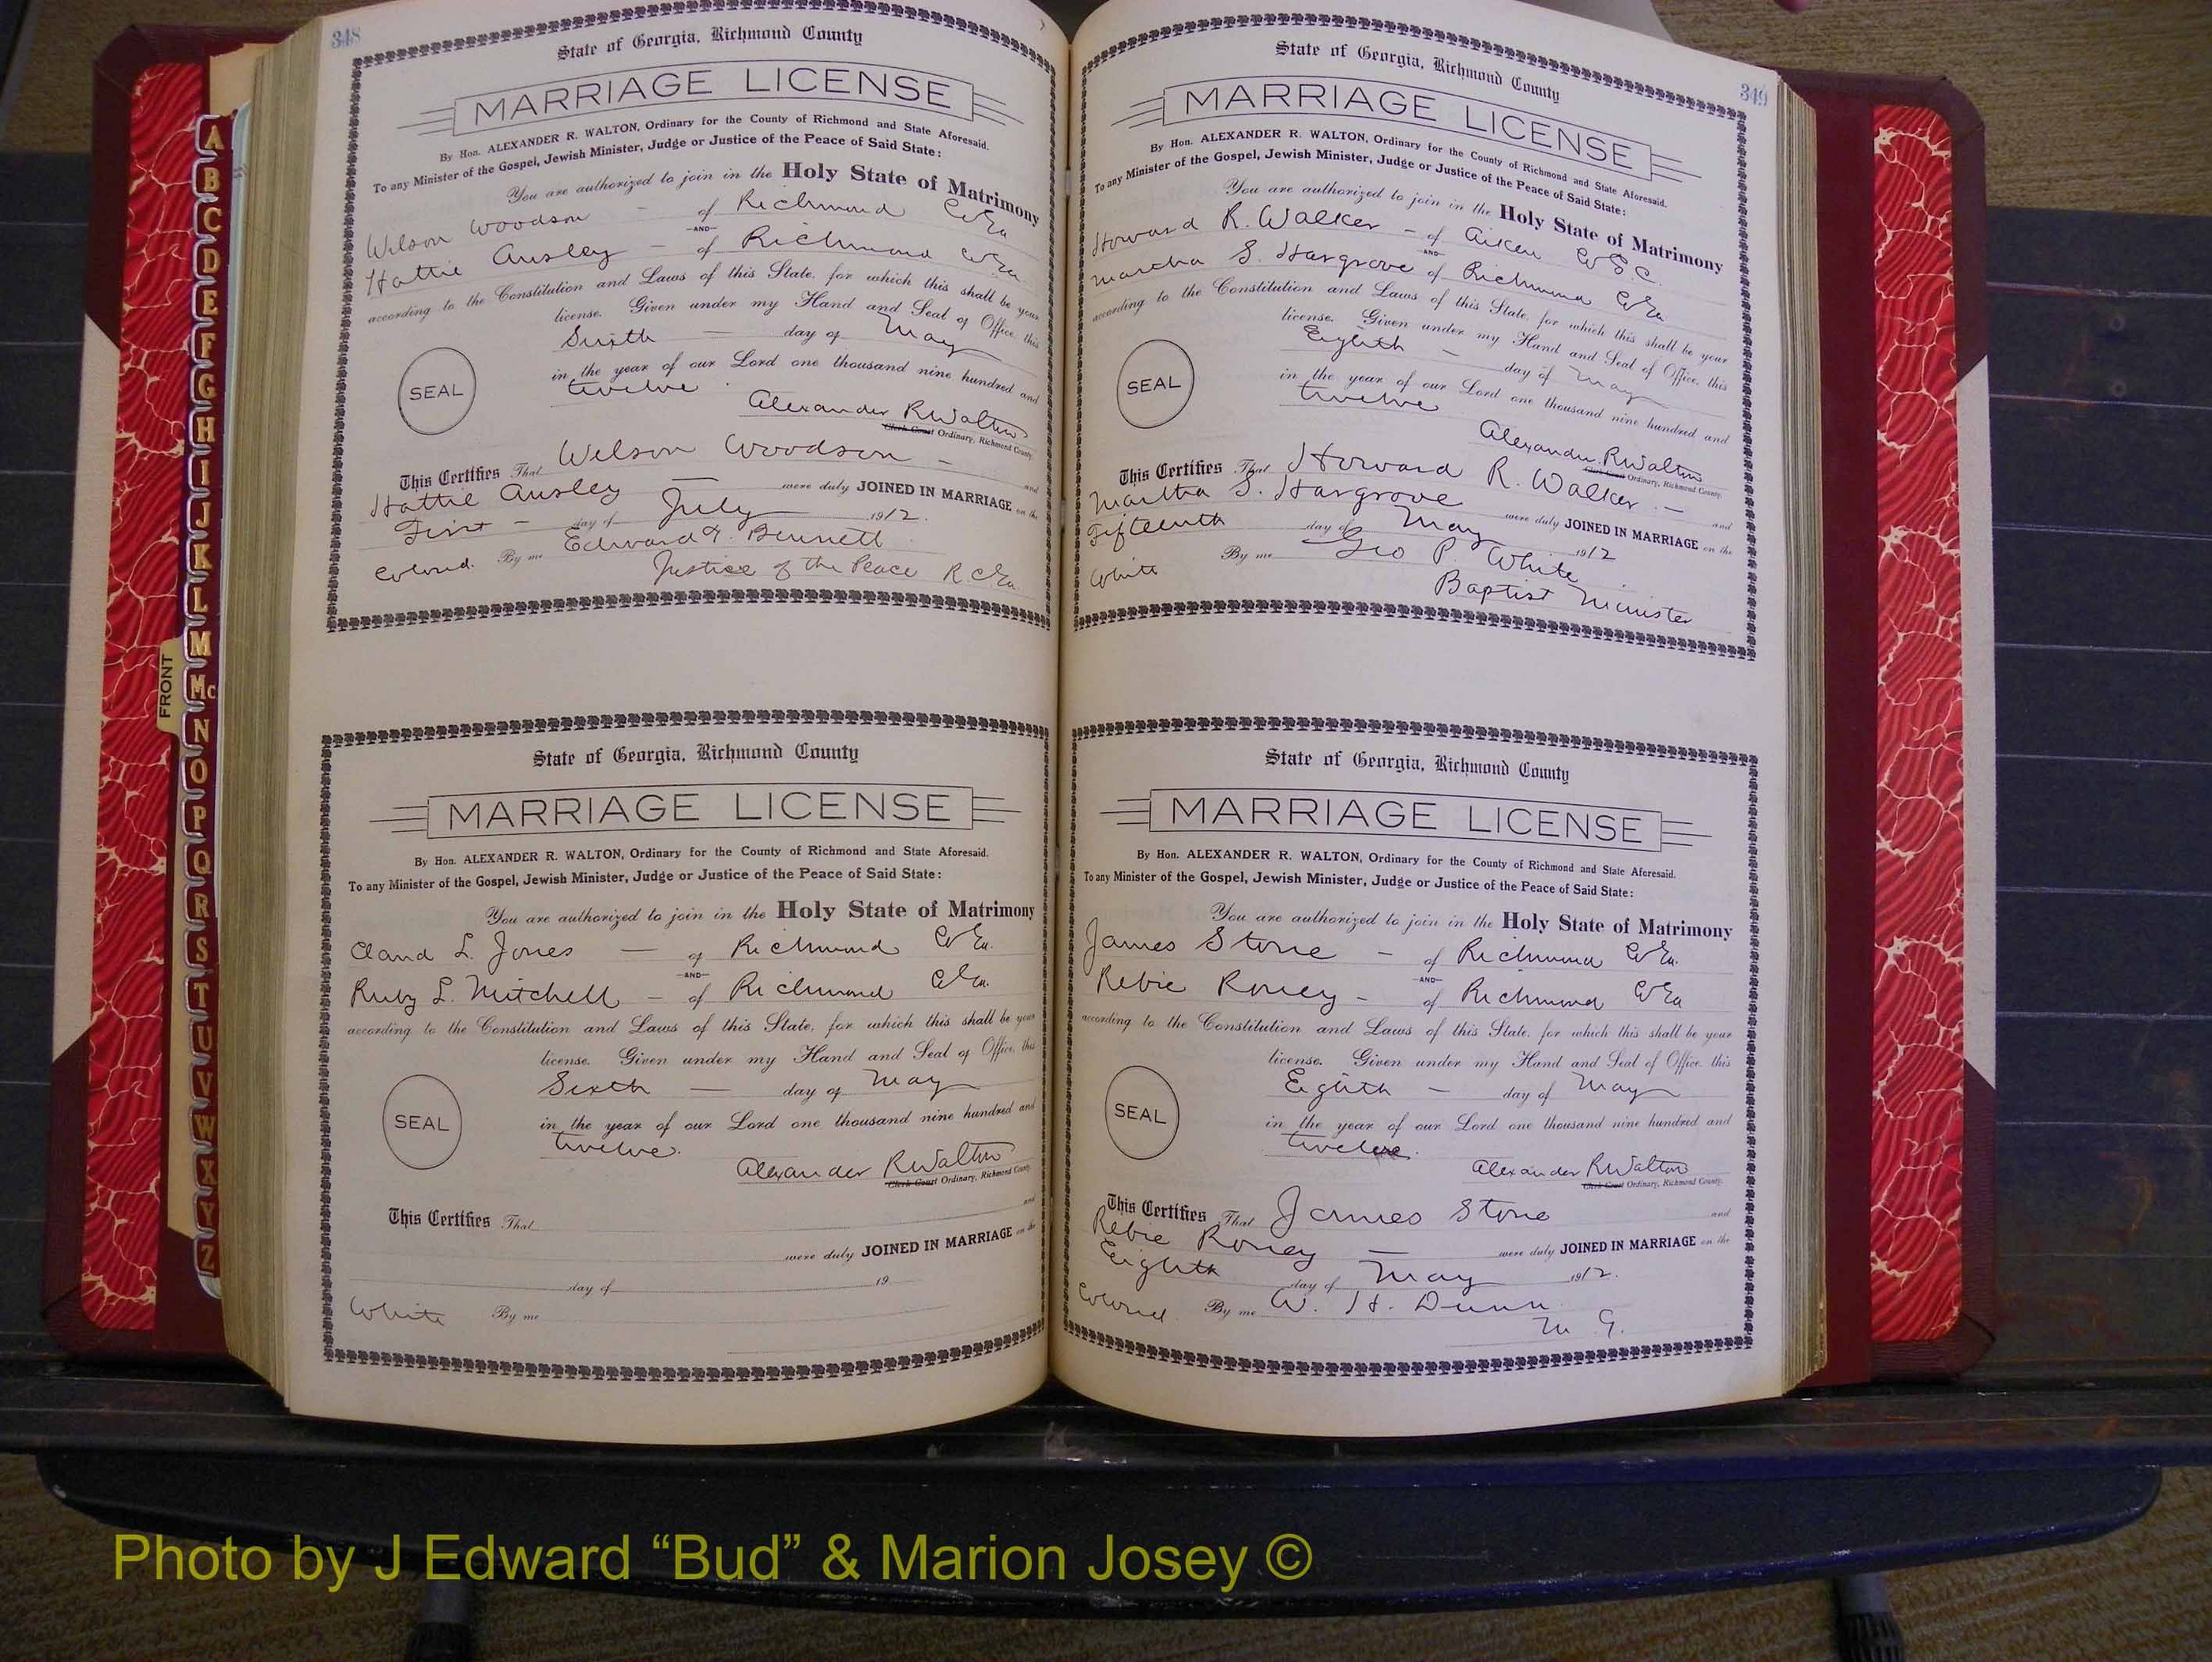 348
State of Georgia, Richmond County
MARRIAGE LICENSE
By Hon. ALEXANDER R. WALTON, Ordinary for the County of Richmond and State Aforesaid.
To any Minister of the Gospel, Jewish Minister, Judge or Justice of the Peace of Said State:
You are authorized to join in the Holy State of Matrimony
Wilson Woodson - of Richmond Co Ga
—AND—
Hattie Ansley - of Richmond Co Ga.
according to the Constitution and Laws of this State, for which this shall be your
license. Given under my Hand and Seal of Office, this
Sixth — day of May
in the year of our Lord one thousand nine hundred and
twelve
SEAL
Alexander R Walton
Clerk Court Ordinary, Richmond County.
This Certifies That Wilson Woodson - and
Hattie Ansley — were duly JOINED IN MARRIAGE on the
First - day of July 1912.
Colored. By me Edward T. Bennett
Justice of the Peace R.C. Ga.
State of Georgia, Richmond County
MARRIAGE LICENSE
By Hon. ALEXANDER R. WALTON, Ordinary for the County of Richmond and State Aforesaid.
To any Minister of the Gospel, Jewish Minister, Judge or Justice of the Peace of Said State:
You are authorized to join in the Holy State of Matrimony
Claud L. Jones — of Richmond Co Ga.
—AND—
Ruby L. Mitchell - of Richmond Co Ga.
according to the Constitution and Laws of this State, for which this shall be your
license. Given under my Hand and Seal of Office, this
Sixth — day of May
in the year of our Lord one thousand nine hundred and
twelve.
SEAL
Alexander R Walton
Clerk Court Ordinary, Richmond County.
This Certifies That and
were duly JOINED IN MARRIAGE on the
day of 19
White By me
349
State of Georgia, Richmond County
MARRIAGE LICENSE
By Hon. ALEXANDER R. WALTON, Ordinary for the County of Richmond and State Aforesaid.
To any Minister of the Gospel, Jewish Minister, Judge or Justice of the Peace of Said State:
You are authorized to join in the Holy State of Matrimony
Howard R. Walker - of Aiken Co S.C.
—AND—
Martha S. Hargrove of Richmond Co Ga
according to the Constitution and Laws of this State, for which this shall be your
license. Given under my Hand and Seal of Office, this
Eighth - day of May
in the year of our Lord one thousand nine hundred and
twelve
SEAL
Alexander R Walton
Clerk Court Ordinary, Richmond County.
This Certifies That Howard R. Walker - and
Martha S. Hargrove were duly JOINED IN MARRIAGE on the
Fifteenth day of May 1912
White By me Geo P White
Baptist Minister
State of Georgia, Richmond County
MARRIAGE LICENSE
By Hon. ALEXANDER R. WALTON, Ordinary for the County of Richmond and State Aforesaid.
To any Minister of the Gospel, Jewish Minister, Judge or Justice of the Peace of Said State:
You are authorized to join in the Holy State of Matrimony
James Stone - of Richmond Co Ga.
—AND—
Rebie Roney - of Richmond Co Ga
according to the Constitution and Laws of this State, for which this shall be your
license. Given under my Hand and Seal of Office, this
Eighth - day of May
in the year of our Lord one thousand nine hundred and
twelve.
SEAL
Alexander R Walton
Clerk Court Ordinary, Richmond County.
This Certifies That James Stone and
Rebie Roney — were duly JOINED IN MARRIAGE on the
Eighth day of May 1912.
Colored. By me W. H. Dunn
M. G.
FRONT
A
B
C
D
E
F
G
H
I
J
K
L
M
Mc
N
O
P
Q
R
S
T
U
V
W
X
Y
Z
Photo by J Edward “Bud” & Marion Josey ©